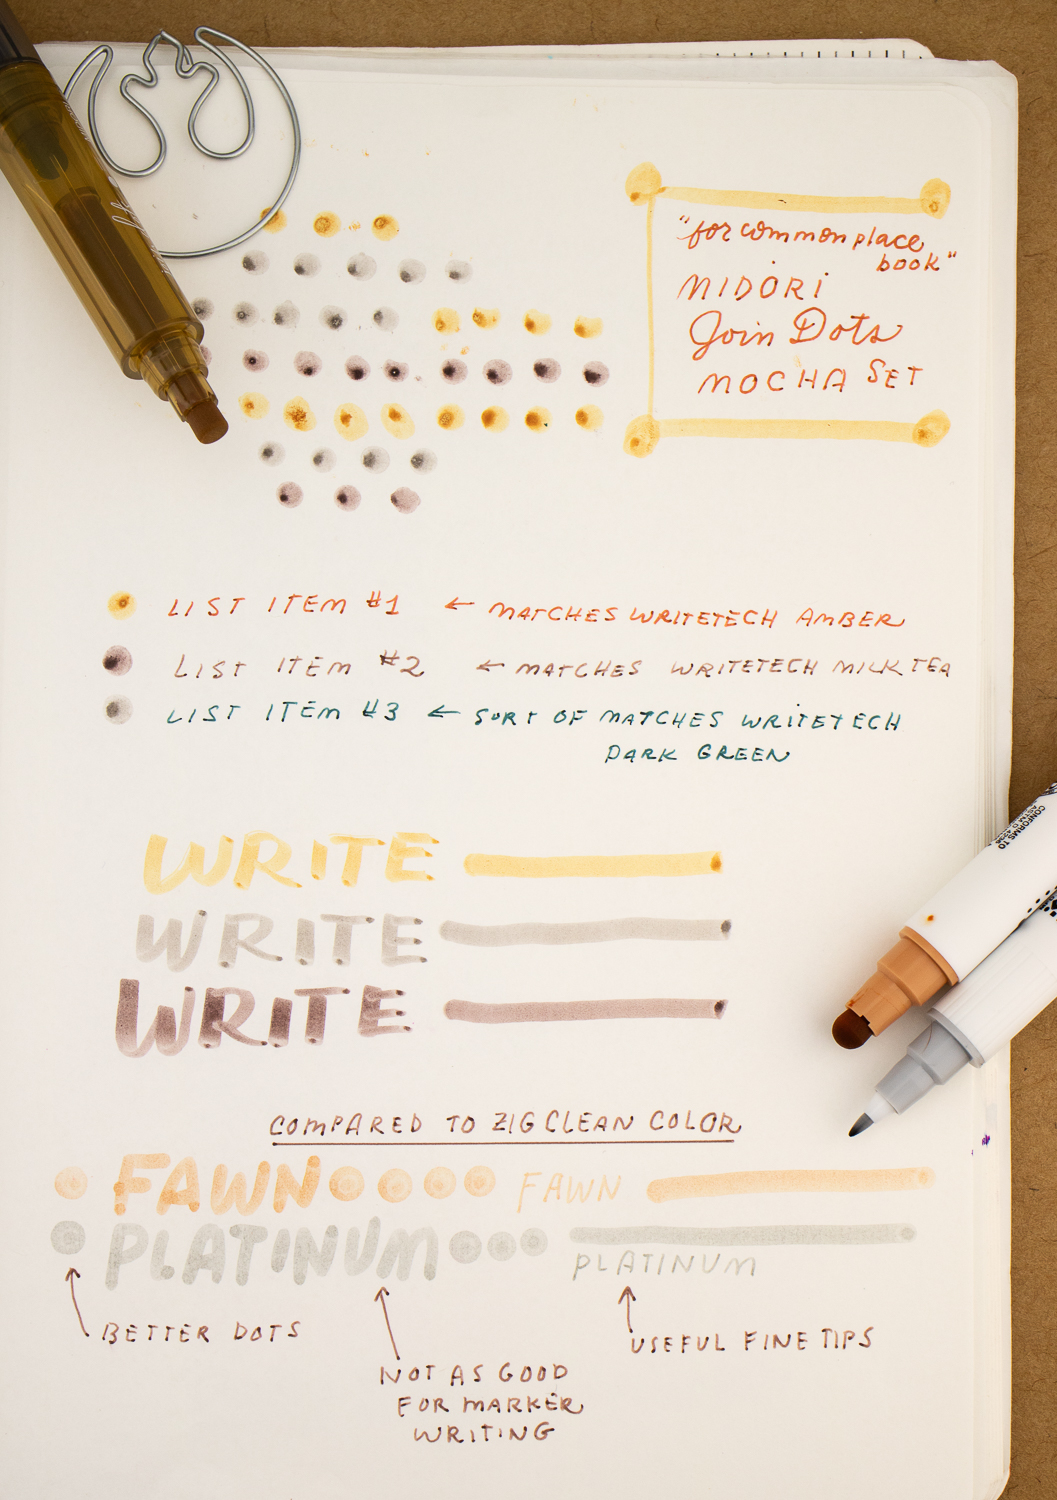 "for common place
book"
MIDORI
Join Dots
MOCHA SET
LIST ITEM #1 ← MATCHES WRITETECH AMBER
LIST ITEM #2 ← MATCHES WRITETECH MILK TEA
LIST ITEM #3 ← SORT OF MATCHES WRITETECH
DARK GREEN
WRITE
WRITE
WRITE
COMPARED TO ZIG CLEAN COLOR
FAWN FAWN
PLATINUM
PLATINUM
BETTER DOTS
USEFUL FINE TIPS
NOT AS GOOD
FOR MARKER
WRITING
CONFORMS TO